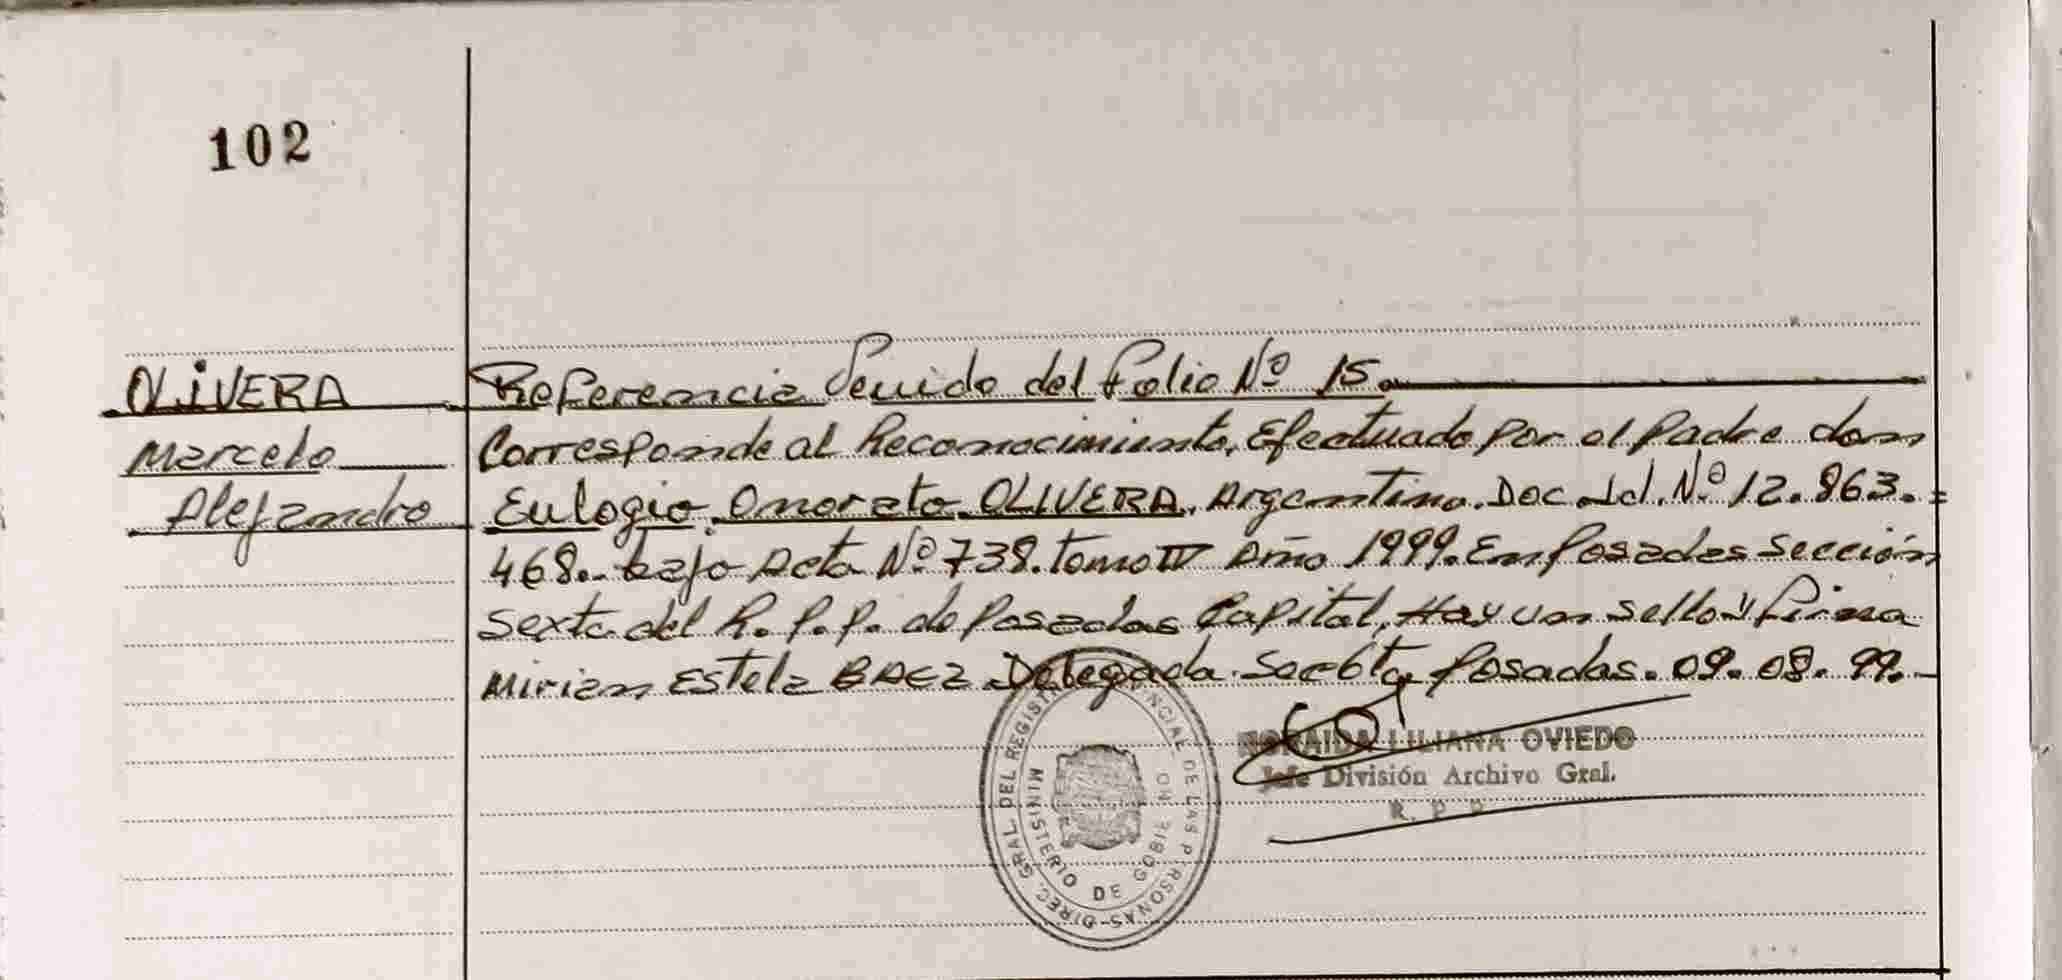 102
OLIVERA
Marcelo
Alejandro
Referencia Venido del Folio Nº 15.
Corresponde al Reconocimiento, Efectuado por el Padre don
Eulogio Onorato OLIVERA, Argentino. Doc. Id. Nº 12.863.=
468.- bajo Acta Nº 738. tomo IV Año 1999. En Posadas Sección
Sexta del R. P. P. de Posadas Capital, Hay un sello y Firma
Mirian Estela BAEZ Delegada. Sec 6ta Posadas. 09. 08. 99.-
LILIANA OVIEDO
Jefe División Archivo Gral.
R. P. P.
DIREC. GRAL. DEL REGIST NCIAL DE LAS P RSONAS
MINISTERIO DE GOBIE NO